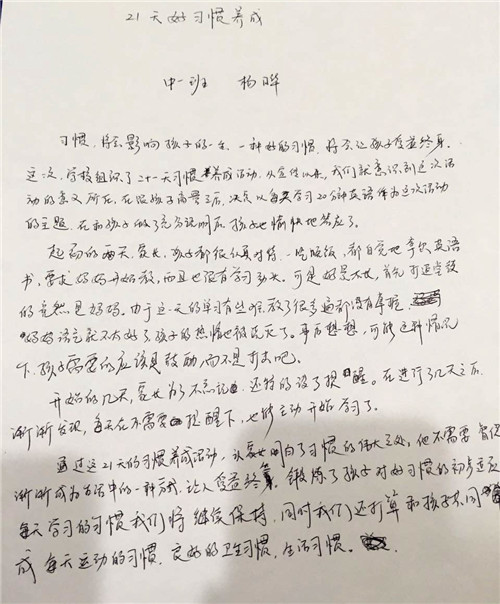 21天好习惯养成
中一班 杨晔
习惯,将会影响孩子的一生,一种好的习惯,将会让孩子受益终身。
这次,学校组织了二十一天习惯养成活动,从宣传以来,我们就意识到这次活
动的意义所在,在跟孩子商量之后,决定以每天学习20分钟英语作为这次活动
的主题,在和孩子做了充分说明后,孩子也愉快地答应了。
起初的两天,家长,孩子都很认真对待,一吃完饭,都自觉地拿起英语
书,要求妈妈开始教,而且也很有学习劲头。可是好景不长,首先打退堂鼓
的竟然是妈妈。由于这一天的学习有些难,教了很多遍都没有掌握,
妈妈语气就不太好了,孩子的热情也被浇灭了。事后想想,可能这种情况
下,孩子需要的应该是鼓励,而不是打击吧。
开始的几天,家长为了不忘记,还特的设了提醒。在进行了几天之后,
渐渐发现,每天在不需要提醒下,也能主动开始学习了。
通过这21天的习惯养成活动,让家长明白了习惯的伟大之处,他不需要督促
渐渐成为生活中的一种方式,让人受益终身。锻炼了孩子对好习惯的初步适应
每天学习的习惯我们将继续保持,同时我们还打算和孩子共同
成每天运动的习惯,良好的卫生习惯,生活习惯。